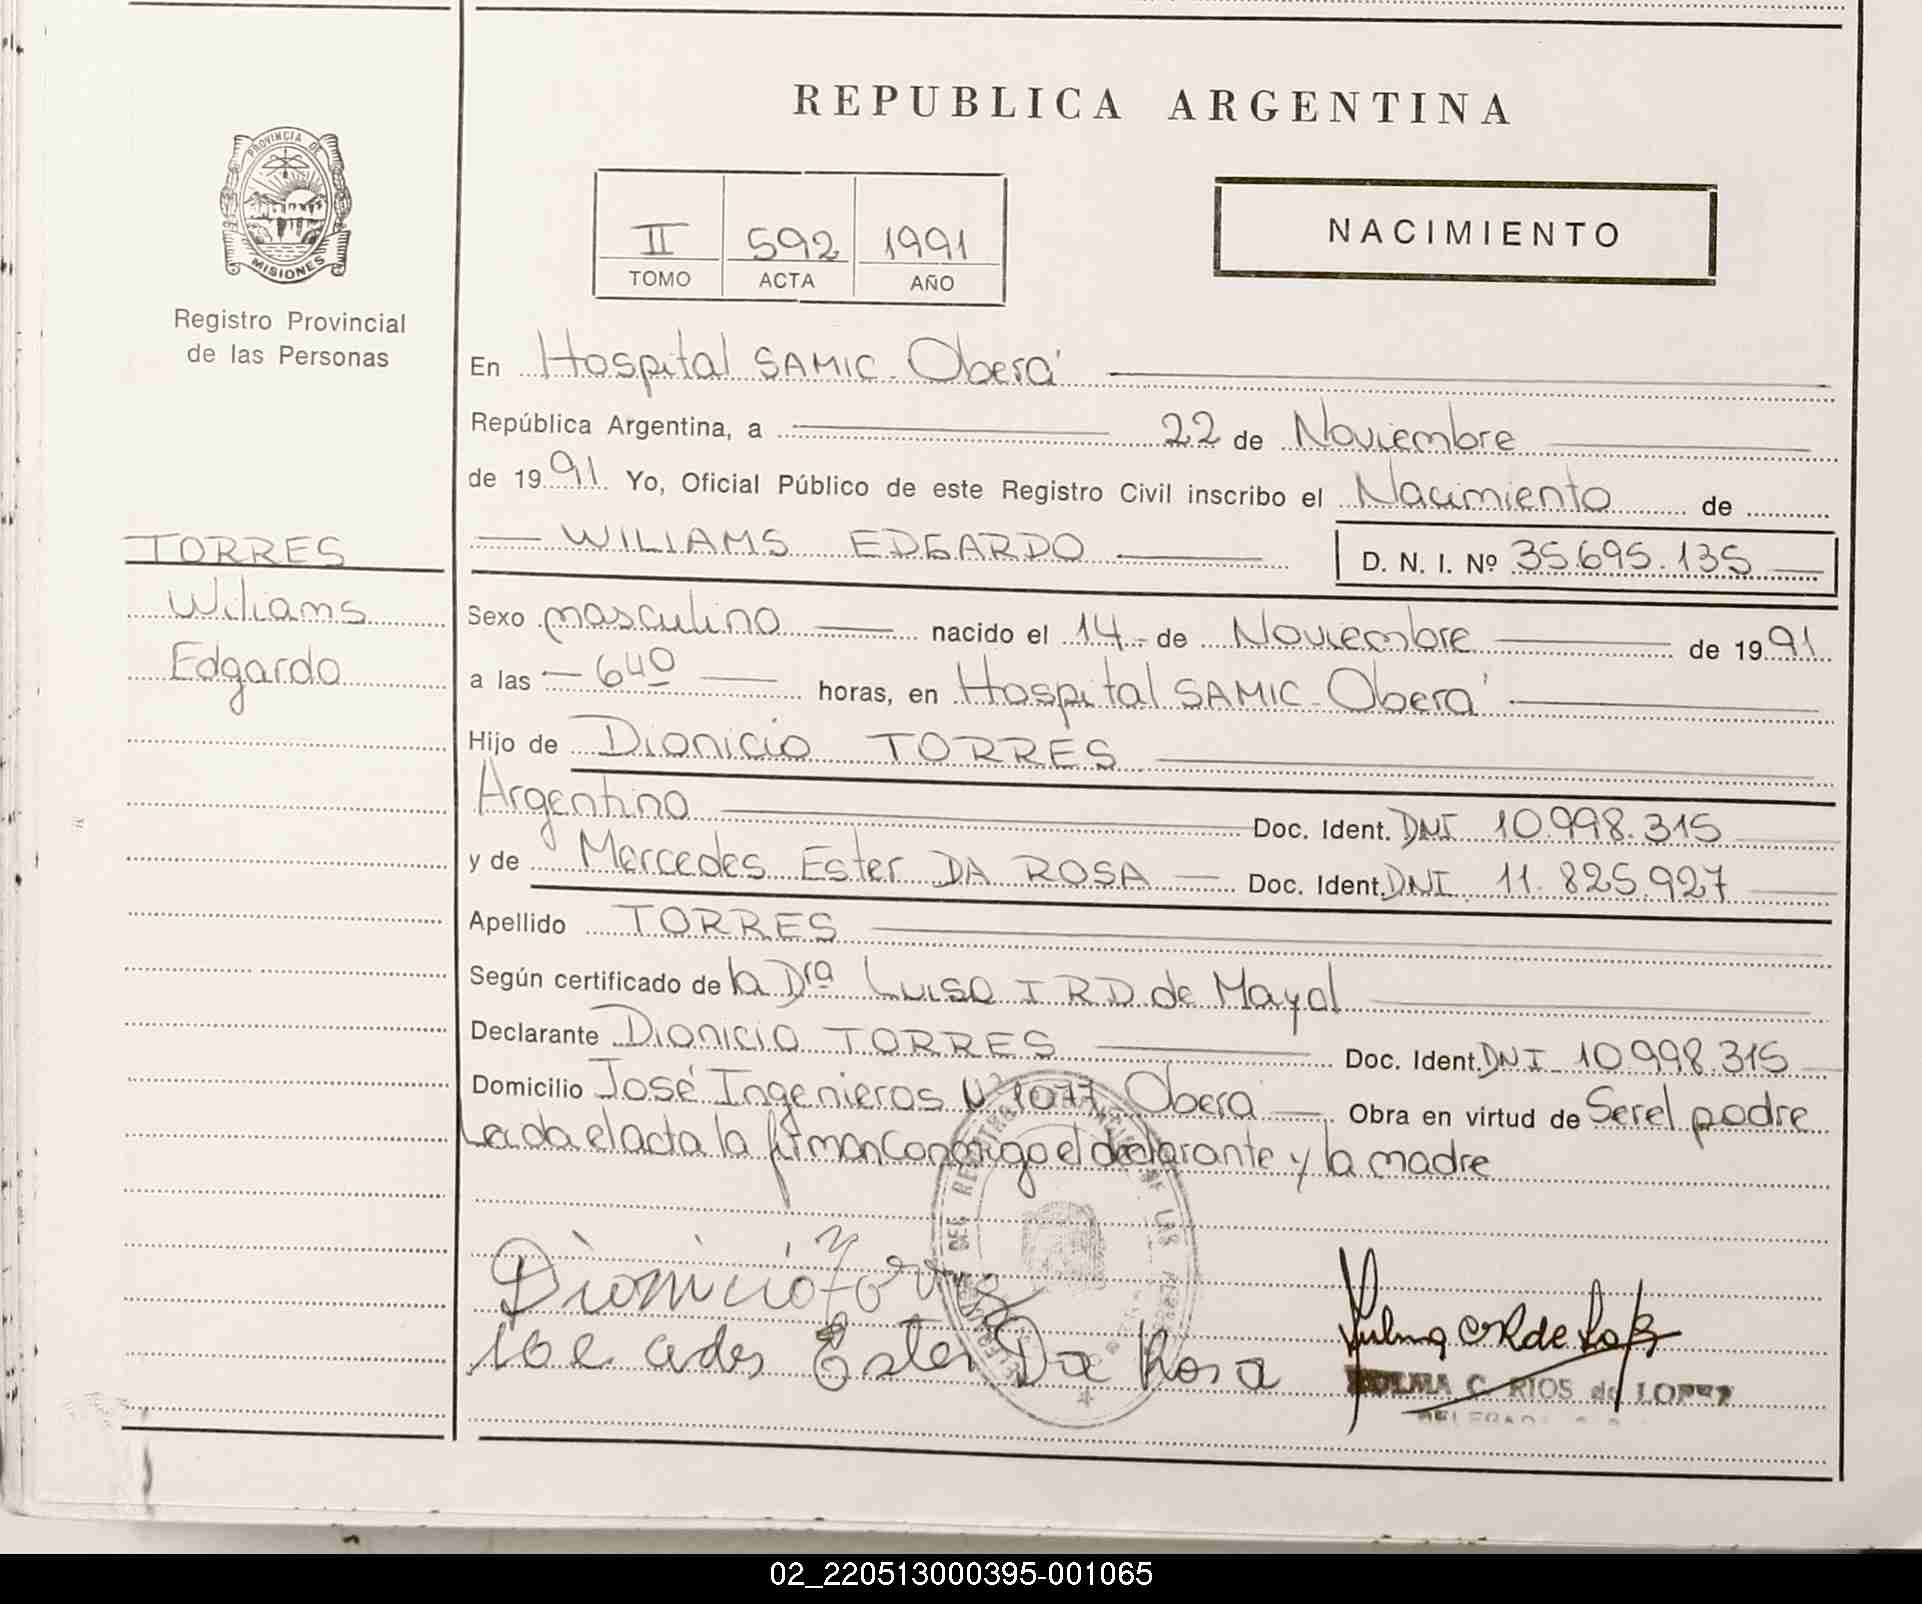 REPUBLICA ARGENTINA
PROVINCIA DE
MISIONES
Registro Provincial
de las Personas
II 592 1991
TOMO ACTA AÑO
NACIMIENTO
En Hospital SAMIC - Oberá
República Argentina, a 22 de Noviembre
de 1991 Yo, Oficial Público de este Registro Civil inscribo el Nacimiento de
WILIAMS EDGARDO D. N. I. Nº 35.695.135
TORRES
Wiliams
Edgardo
Sexo masculino nacido el 14 de Noviembre de 1991
a las 640 horas, en Hospital SAMIC - Oberá
Hijo de Dionicio TORRES
Argentino Doc. Ident. DNI 10.998.315
y de Mercedes Ester DA ROSA Doc. Ident. DNI 11.825.927
Apellido TORRES
Según certificado de la Dra Luisa I R D de Mayol
Declarante Dionicio TORRES Doc. Ident. DNI 10.998.315
Domicilio José Ingenieros Nº 1077 Oberá Obra en virtud de Ser el padre
Leida el acta la firman conmigo el declarante y la madre
Dionicio Torres
Ester Da Rosa
C. RIOS de LOPEZ
02_220513000395-001065